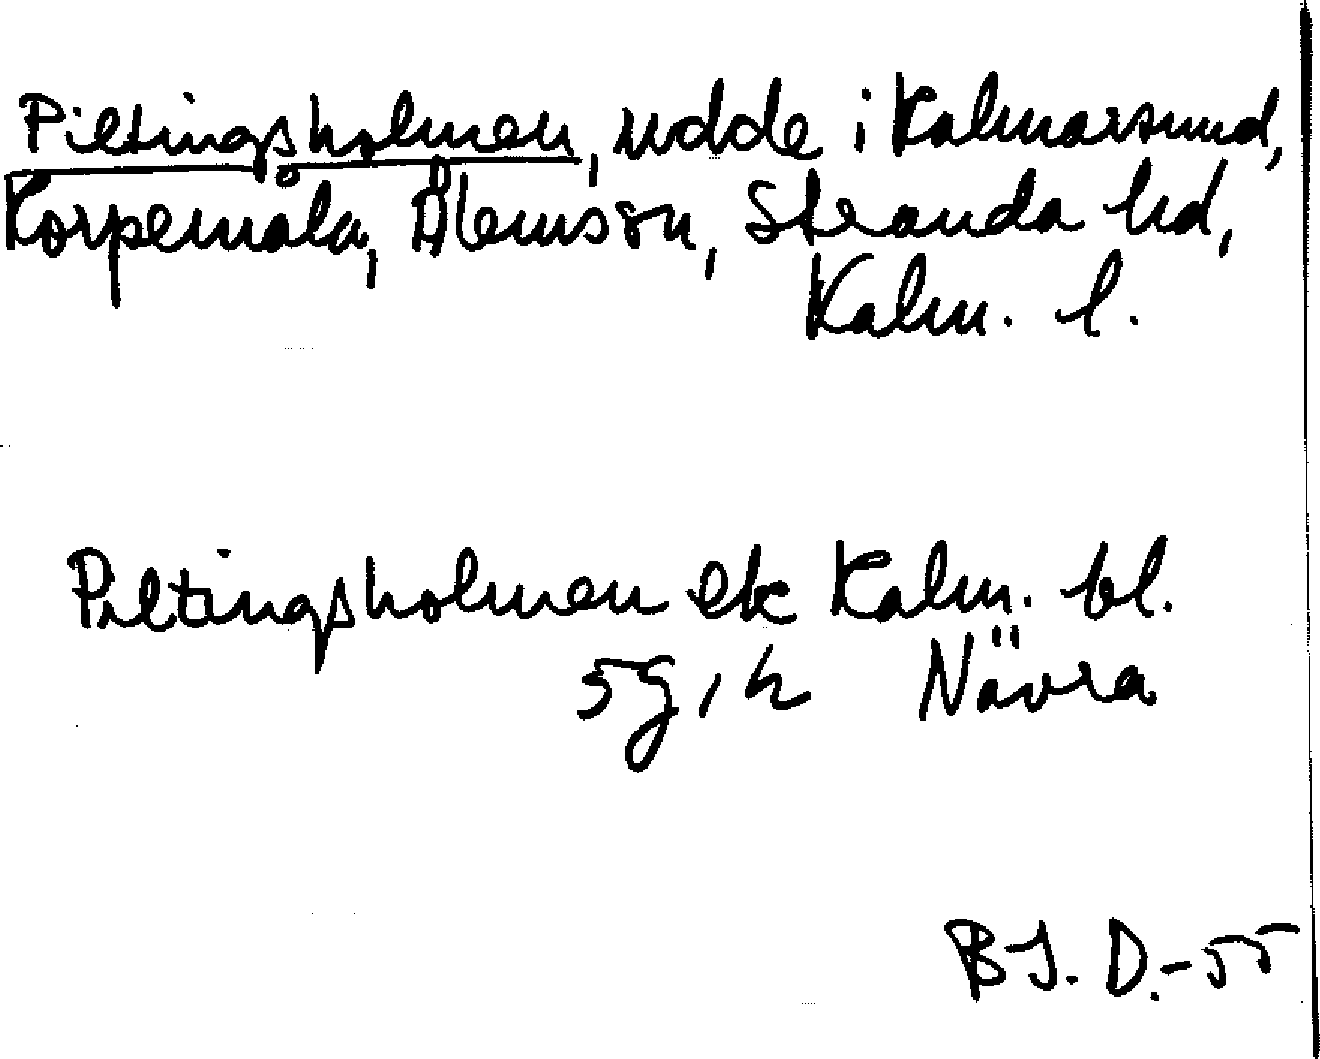 Piltingsholmen, udde i Kalmarsund,
Korpemåla, Ålems sn, Stranda hd,
Kalm. l.
Piltingsholmen ek Kalm. bl.
5 g, h Nävra
B J. D.-55